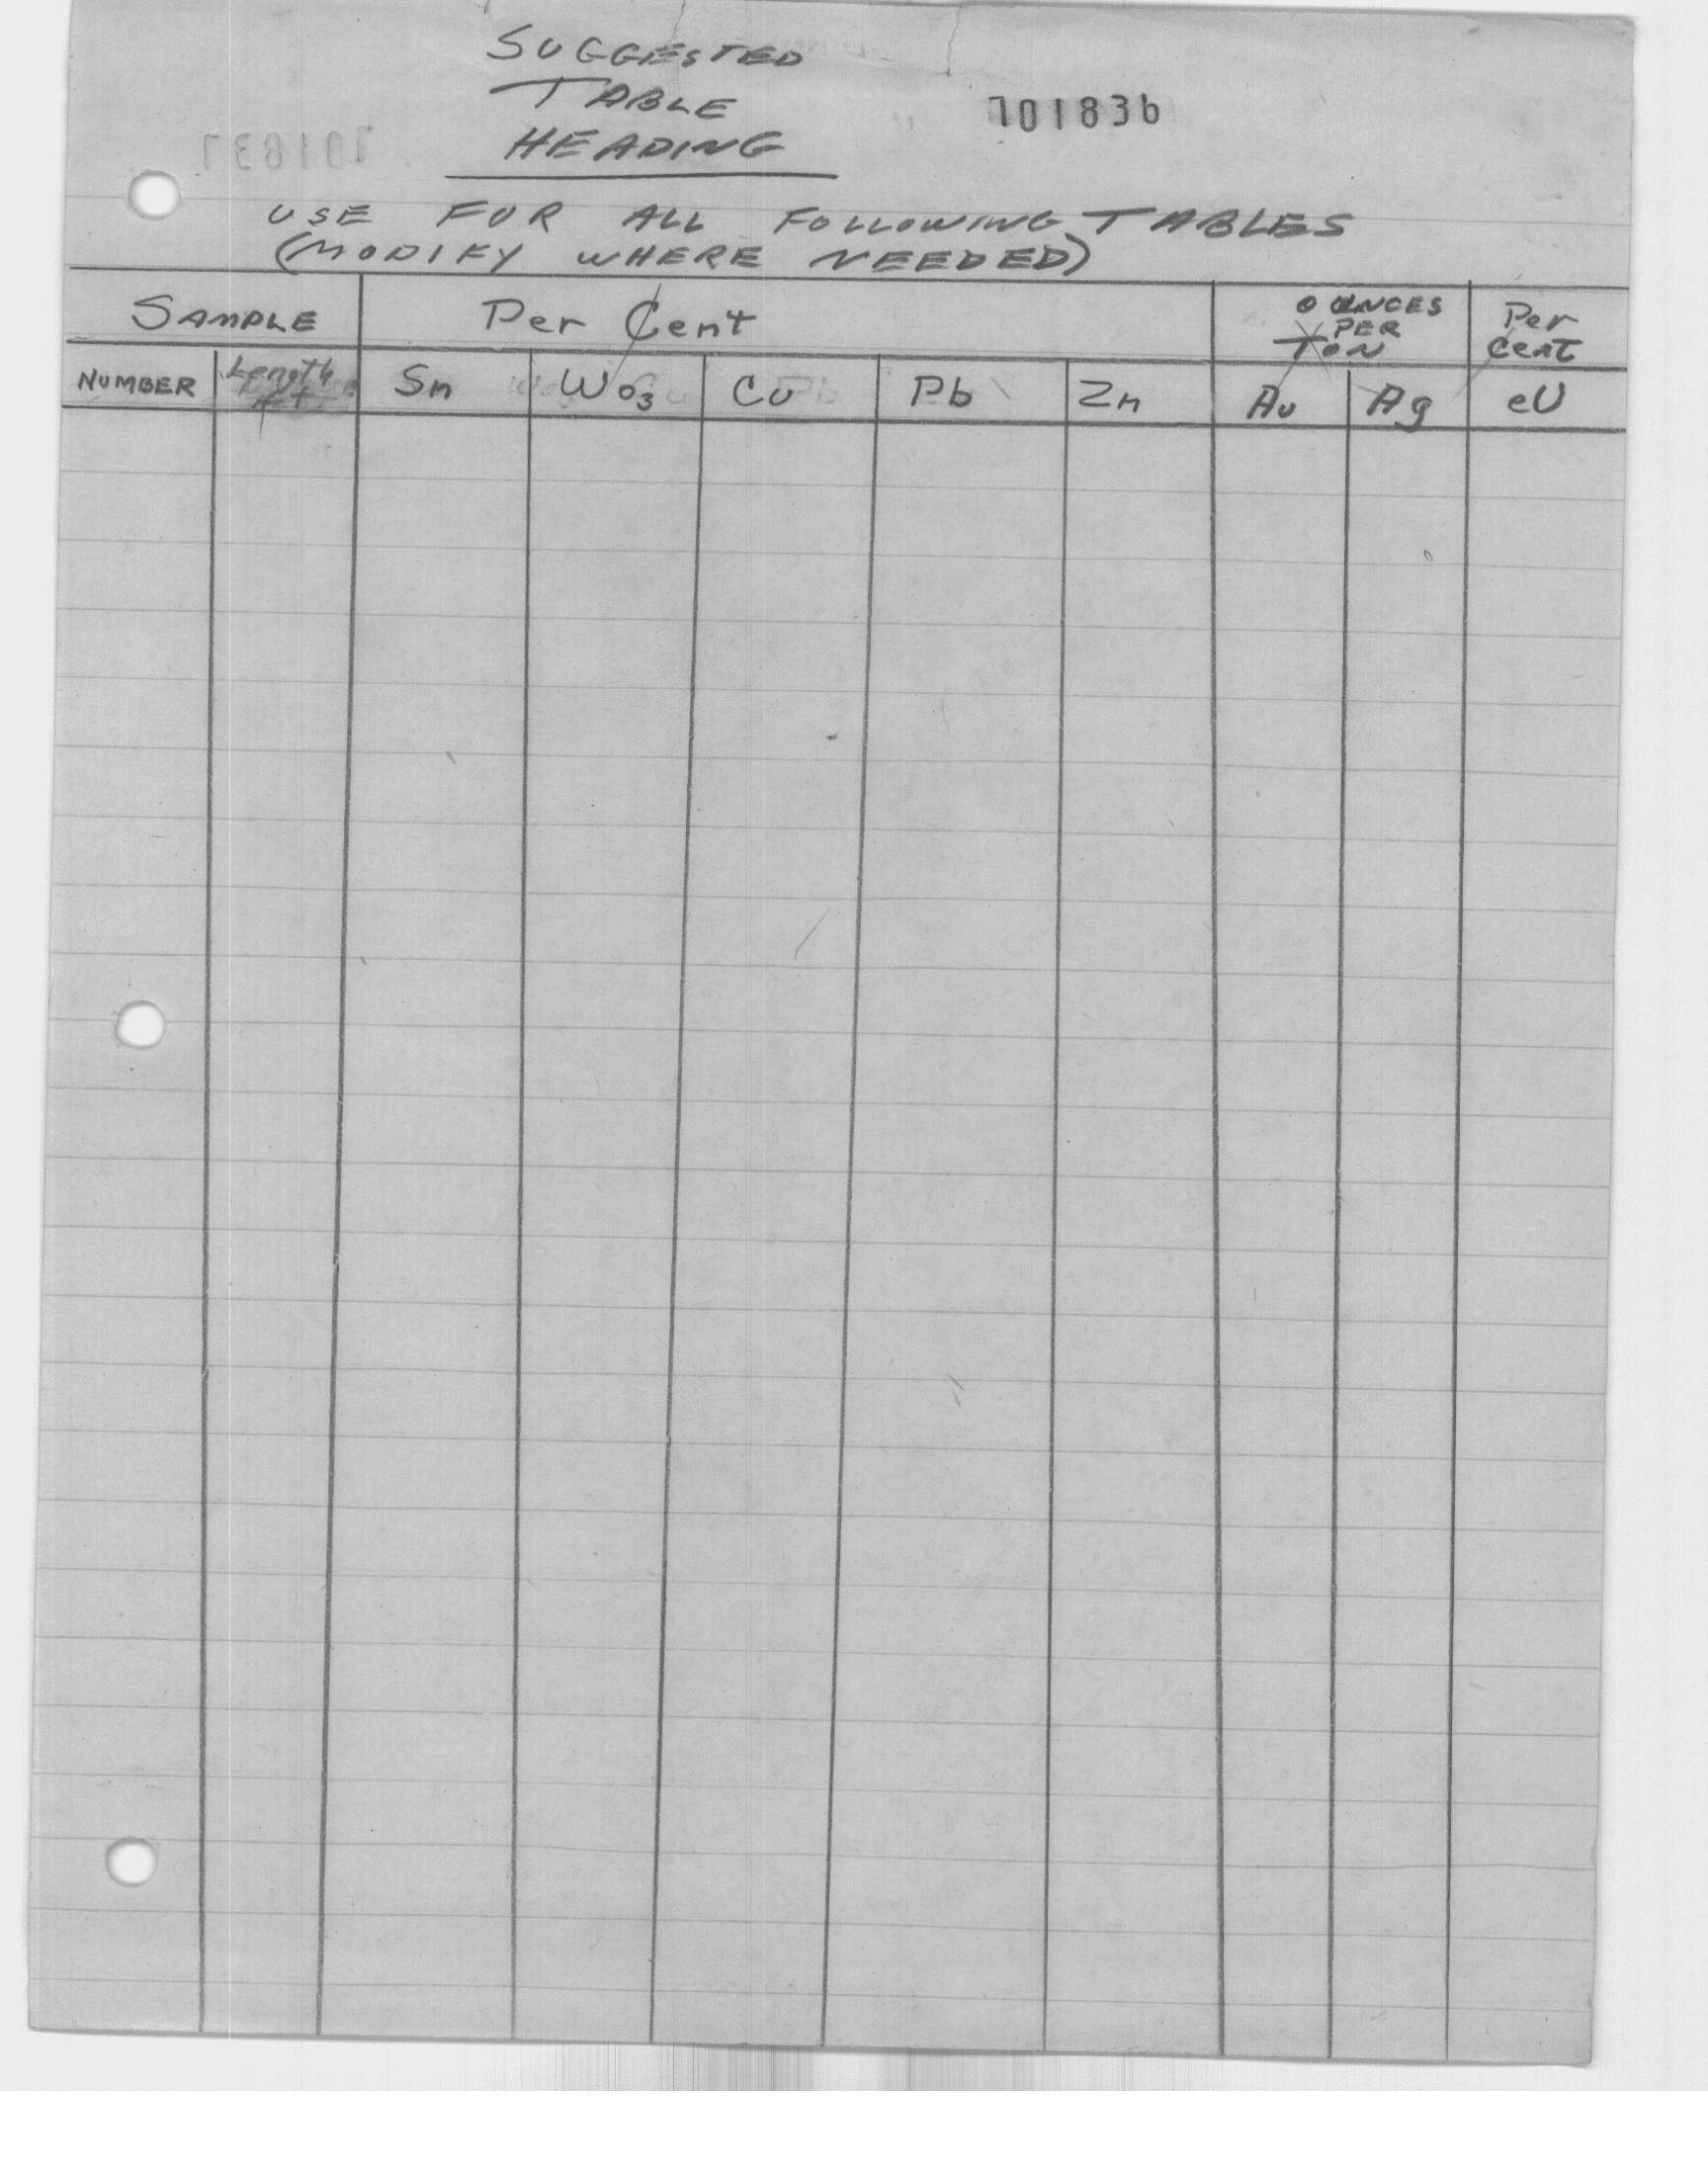 SUGGESTED
TABLE
HEADING
701836
USE FOR ALL FOLLOWING TABLES
(MODIFY WHERE NEEDED)
SAMPLE Per Cent OUNCES PER TON Per Cent
NUMBER Length Sn WO3 Cu Pb Zn Au Ag eU